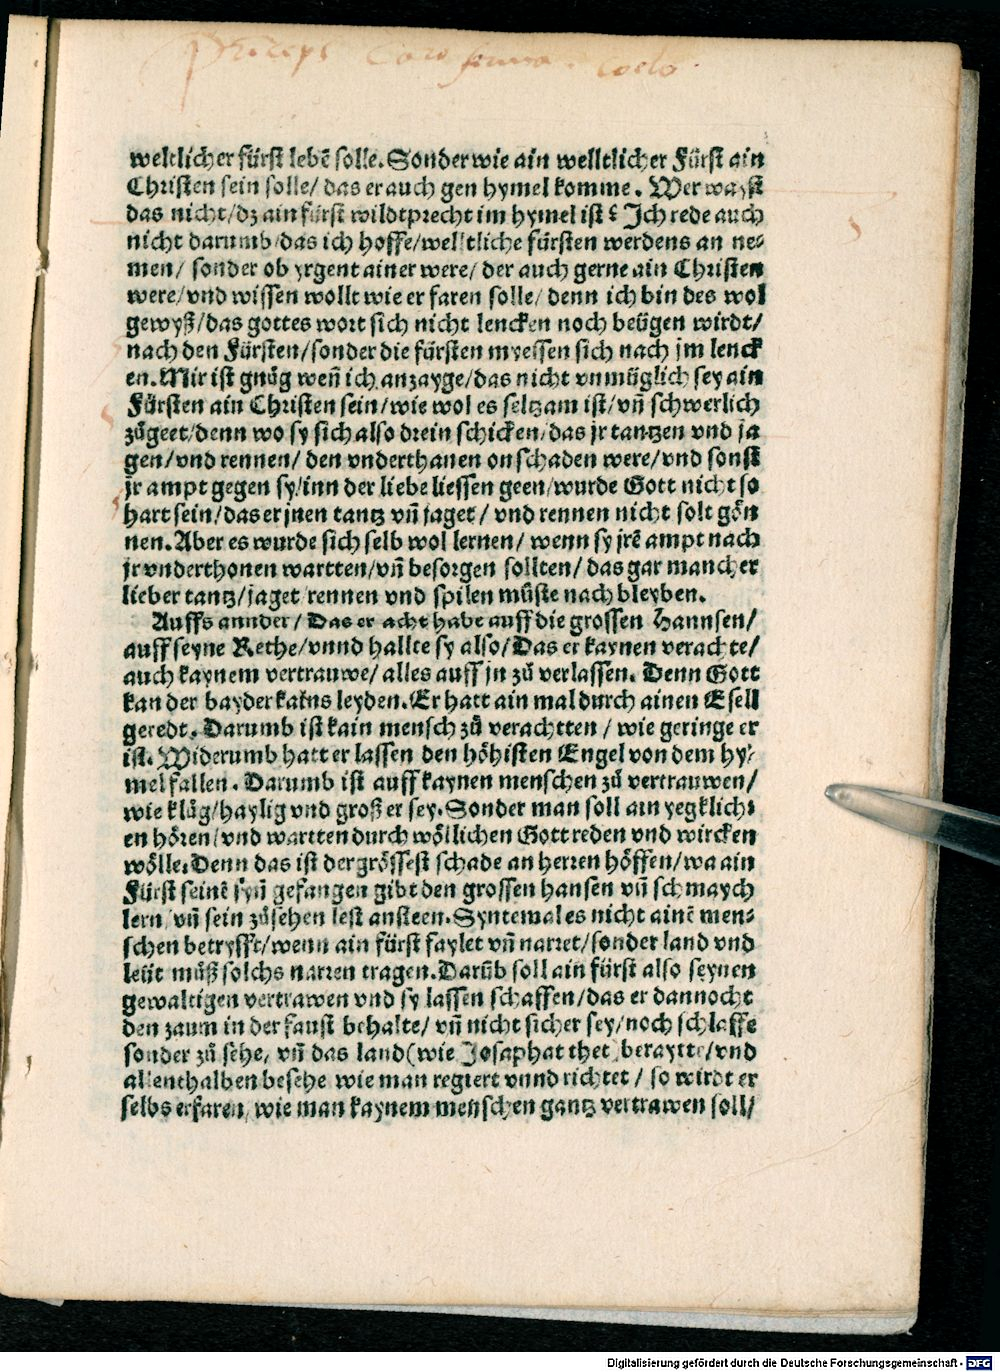 Princeps Caro ferina coelo
weltlicher fürst lebē solle. Sonder wie ain welltlicher Fürst ain
Christen sein solle/ das er auch gen hymel komme. Wer wayst
das nicht/ dz ain fürst wildtprecht im hymel ist? Jch rede auch
nicht darumb/ das ich hoffe/ welltliche fürsten werdens an ne-
men/ sonder ob yrgent ainer were/ der auch gerne ain Christen
were/ vnd wissen wollt wie er faren solle/ denn ich bin des wol
gewyß/ das gottes wort sich nicht lencken noch beügen wirdt/
nach den Fürsten/ sonder die fürsten muessen sich nach jm lenck
en. Mir ist gnůg weñ ich anzayge/ das nicht vnmüglich sey ain
Fürsten ain Christen sein/ wie wol es seltzam ist/ vñ schwerlich
zůgeet/ denn wo sy sich also drein schicken/ das jr tantzen vnd ja
gen/ vnd rennen/ den vnderthanen on schaden were/ vnd sonst
jr ampt gegen sy/ inn der liebe liessen geen/ wurde Gott nicht so
hart sein/ das er jnen tantz vñ jaget/ vnd rennen nicht solt gön
nen. Aber es wurde sich selb wol lernen/ wenn sy jrē ampt nach
jr vnderthonen wartten/ vñ besorgen sollten/ das gar mancher
lieber tantz/ jaget/ rennen vnd spilen müste nach bleyben.
Auffs annder/ Das er acht habe auff die grossen Hannsen/
auff seyne Rethe/ vnnd hallte sy also/ Das er kaynen verachte/
auch kaynem vertrauwe/ alles auff jn zů verlassen. Denn Gott
kan der bayder kains leyden. Er hatt ain mal durch ainen Esell
geredt. Darumb ist kain mensch zů verachtten/ wie geringe er
ist. Widerumb hatt er lassen den höhisten Engel von dem hy-
mel fallen. Darumb ist auff kaynen menschen zů vertrauwen/
wie klůg/ haylig vnd groß er sey. Sonder man soll ain yegklich-
en hören/ vnd wartten durch wöllichen Gott reden vnd wircken
wölle. Denn das ist der grössest schade an herren höffen/ wa ain
Fürst seinē syñ gefangen gibt den grossen hansen vñ schmaych
lern/ vñ sein zůsehen lest ansteen. Syntemal es nicht ainē men-
schen betrysst/ wenn ain fürst faylet vñ narret/ sonder land vnd
leüt můß solchs narren tragen. Darūb soll ain fürst also seynen
gewaltigen vertrawen vnd sy lassen schaffen/ das er dannocht
den zaum in der faust behalte/ vñ nicht sicher sey/ noch schlaffe
sonder zů sehe, vñ das land (wie Josaphat thet) beraytte/ vnd
allenthalben besehe wie man regiert vnnd richtet/ so wirdt er
selbs erfaren, wie man kaynem menschen gantz vertrawen soll/
Digitalisierung gefördert durch die Deutsche Forschungsgemeinschaft - DFG